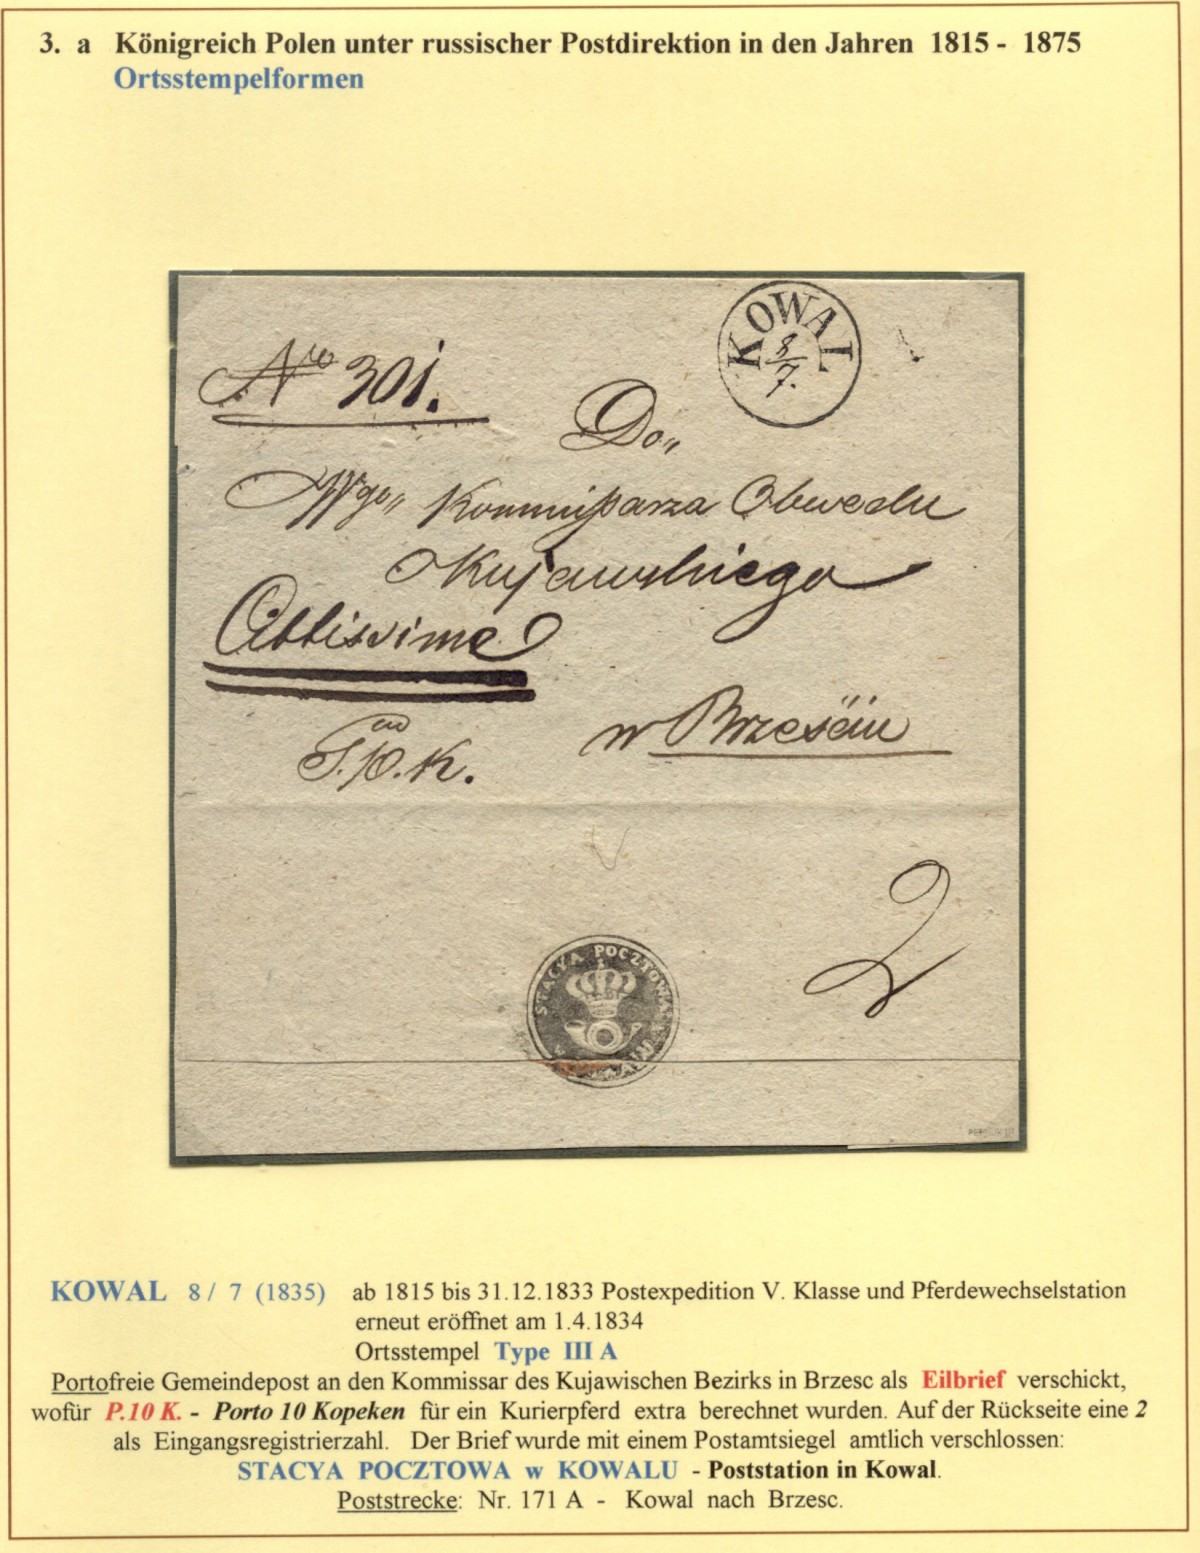 3. a Königreich Polen unter russischer Postdirektion in den Jahren 1815 - 1875
Ortsstempelformen
KOWAL
8/7.
No 301.
Do"
Wgo" Kommissarza Obwodu
Kujawskiego
Cittissime
P.10.K.
w Brześciu
2
STACYA POCZTOWA
KOWAL 8 / 7 (1835) ab 1815 bis 31.12.1833 Postexpedition V. Klasse und Pferdewechselstation
erneut eröffnet am 1.4.1834
Ortsstempel Type III A
Portofreie Gemeindepost an den Kommissar des Kujawischen Bezirks in Brzesc als Eilbrief verschickt,
wofür P.10 K. - Porto 10 Kopeken für ein Kurierpferd extra berechnet wurden. Auf der Rückseite eine 2
als Eingangsregistrierzahl. Der Brief wurde mit einem Postamtsiegel amtlich verschlossen:
STACYA POCZTOWA w KOWALU - Poststation in Kowal.
Poststrecke: Nr. 171 A - Kowal nach Brzesc.